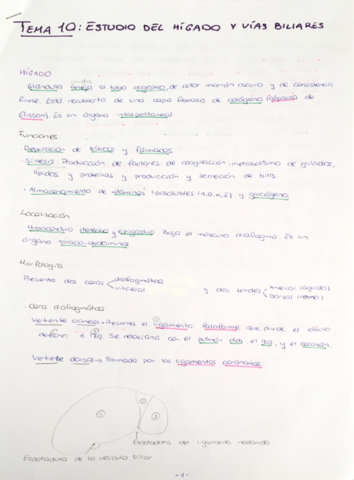 TEMA 10: ESTUDIO DEL HÍGADO Y VÍAS BILIARES
HÍGADO
Glándula anexa al tubo digestivo, de color marrón oscuro y de consistencia
firme. Está recubierto de una capa fibrosa de colágeno (cápsula de
Glisson). Es un órgano intraperitoneal
Funciones
· Depuración de tóxicos y fármacos
· Síntesis. Producción de factores de coagulación, metabolismo de glúcidos,
lípidos y proteínas y producción y secreción de bilis
· Almacenamiento de vitaminas liposolubles (A,D,K,E) y glucógeno
Localización
Hipocondrio derecho y epigastrio bajo el músculo diafragma. Es un
órgano toraco-abdominal
Morfología
Presenta dos caras diafragmática
visceral
y dos bordes anterior (agudo)
dorsal (romo)
· Cara diafragmática
Vertiente convexa → Presenta el ligamento falciforme que divide el hígado
derecho e izq. Se relaciona con el pulmón dcho, el izq. y el corazón.
Vertiente dorsal → Formada por los ligamentos coronarios.
Escotadura de ligamento redondo
Escotadura de la vesícula biliar
-1-